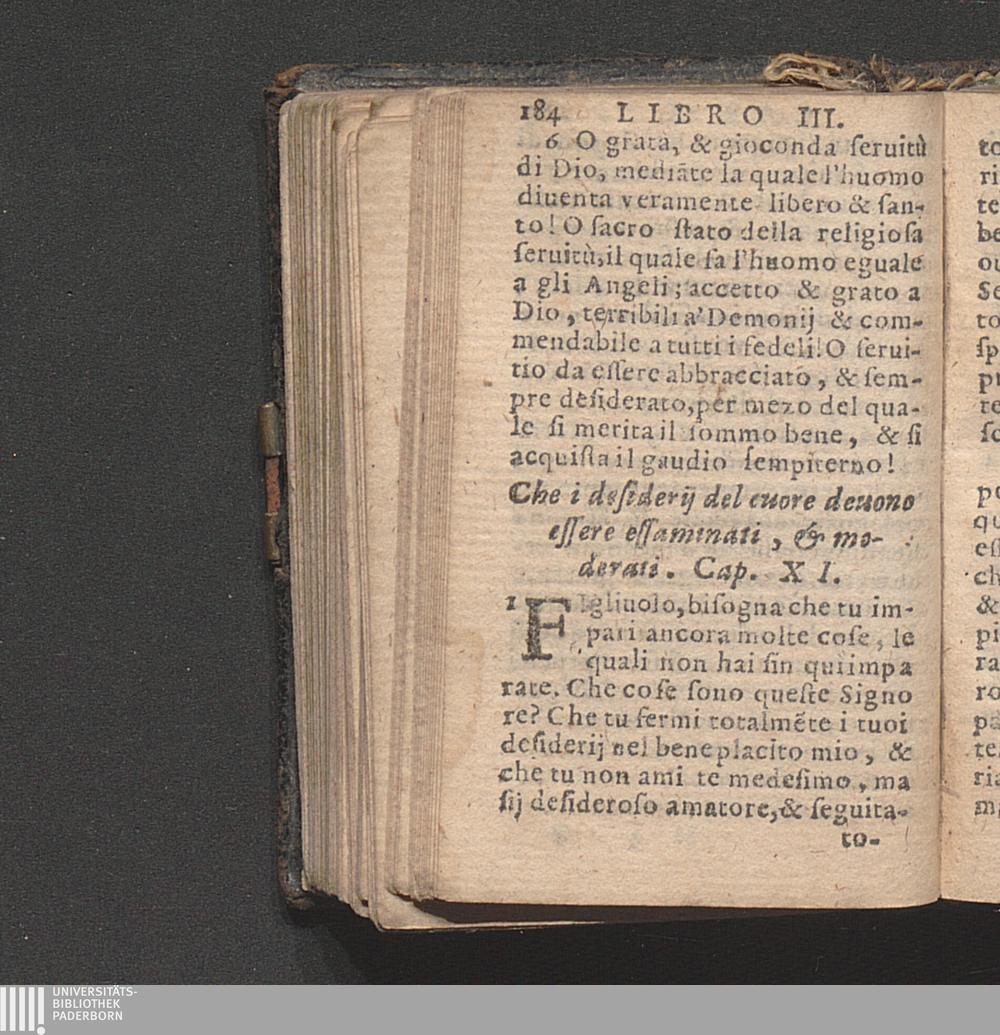 184 LIBRO III.
6 O grata, & gioconda ſeruitù
di Dio, mediāte la quale l'huomo
diuenta veramente libero & ſan-
to! O ſacro ſtato della religioſa
ſeruitù, il quale fa l'huomo eguale
a gli Angeli; accetto & grato a
Dio, terribili a' Demonij & com-
mendabile a tutti i fedeli! O ſerui-
tio da eſſere abbracciato, & ſem-
pre deſiderato, per mezo del qua-
le ſi merita il ſommo bene, & ſi
acquiſta il gaudio ſempiterno!
Che i deſiderij del cuore deuono
eſſere eſſaminati, & mo-
derati. Cap. XI.
1 FIgliuolo, biſogna che tu im-
pari ancora molte coſe, le
quali non hai ſin qui impa
rate. Che coſe ſono queſte Signo
re? Che tu fermi totalmēte i tuoi
deſiderij nel beneplacito mio, &
che tu non ami te medeſimo, ma
ſij deſideroſo amatore, & ſeguita-
to-
to
ri
te
be
ou
Se
to
ſp
pr
re
ſc
po
qu
eſ
ch
&
pi
ra
ro
pa
te
ria
m
UNIVERSITÄTS-
BIBLIOTHEK
PADERBORN